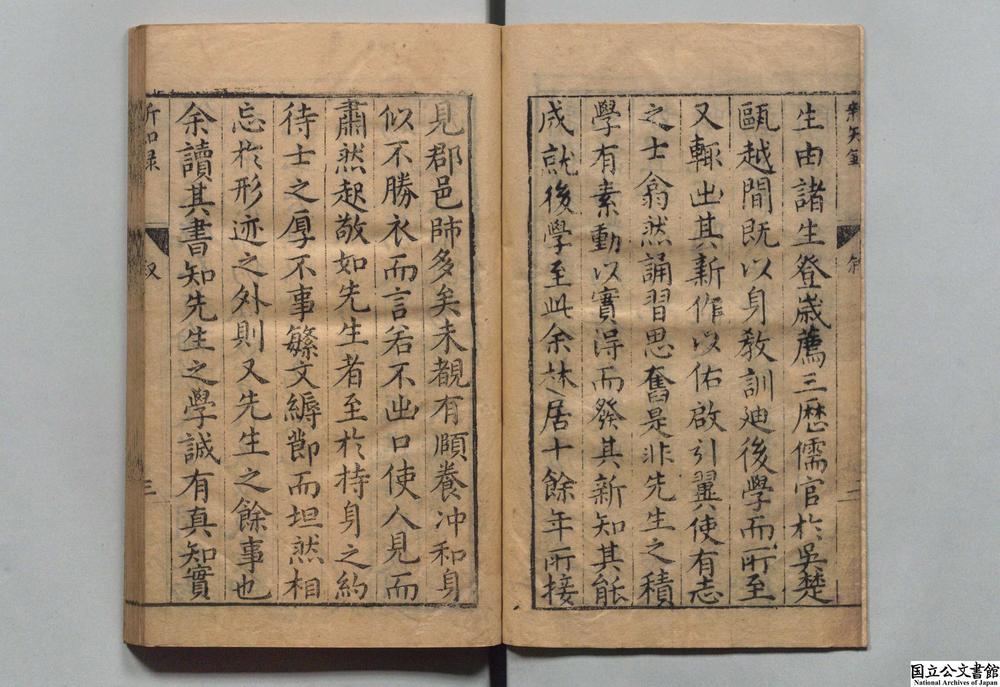 生由諸生登歲薦三歷儒官於吳楚
甌越間既以身敎訓迪後學而所至
又輙出其新作以佑啟引翼使有志
之士翕然誦習思奮是非先生之積
學有素動以實淂而發其新知其能
成就後學至此余林居十餘年所接
見郡邑師多矣未覩有頤養冲和身
似不勝衣而言若不出口使人見而
肅然起敬如先生者至於持身之約
待士之厚不事繁文縟節而坦然相
忘於形迹之外則又先生之餘事也
余讀其書知先生之學誠有真知實
新知錄
叙
三
国立公文書館
National Archives of Japan